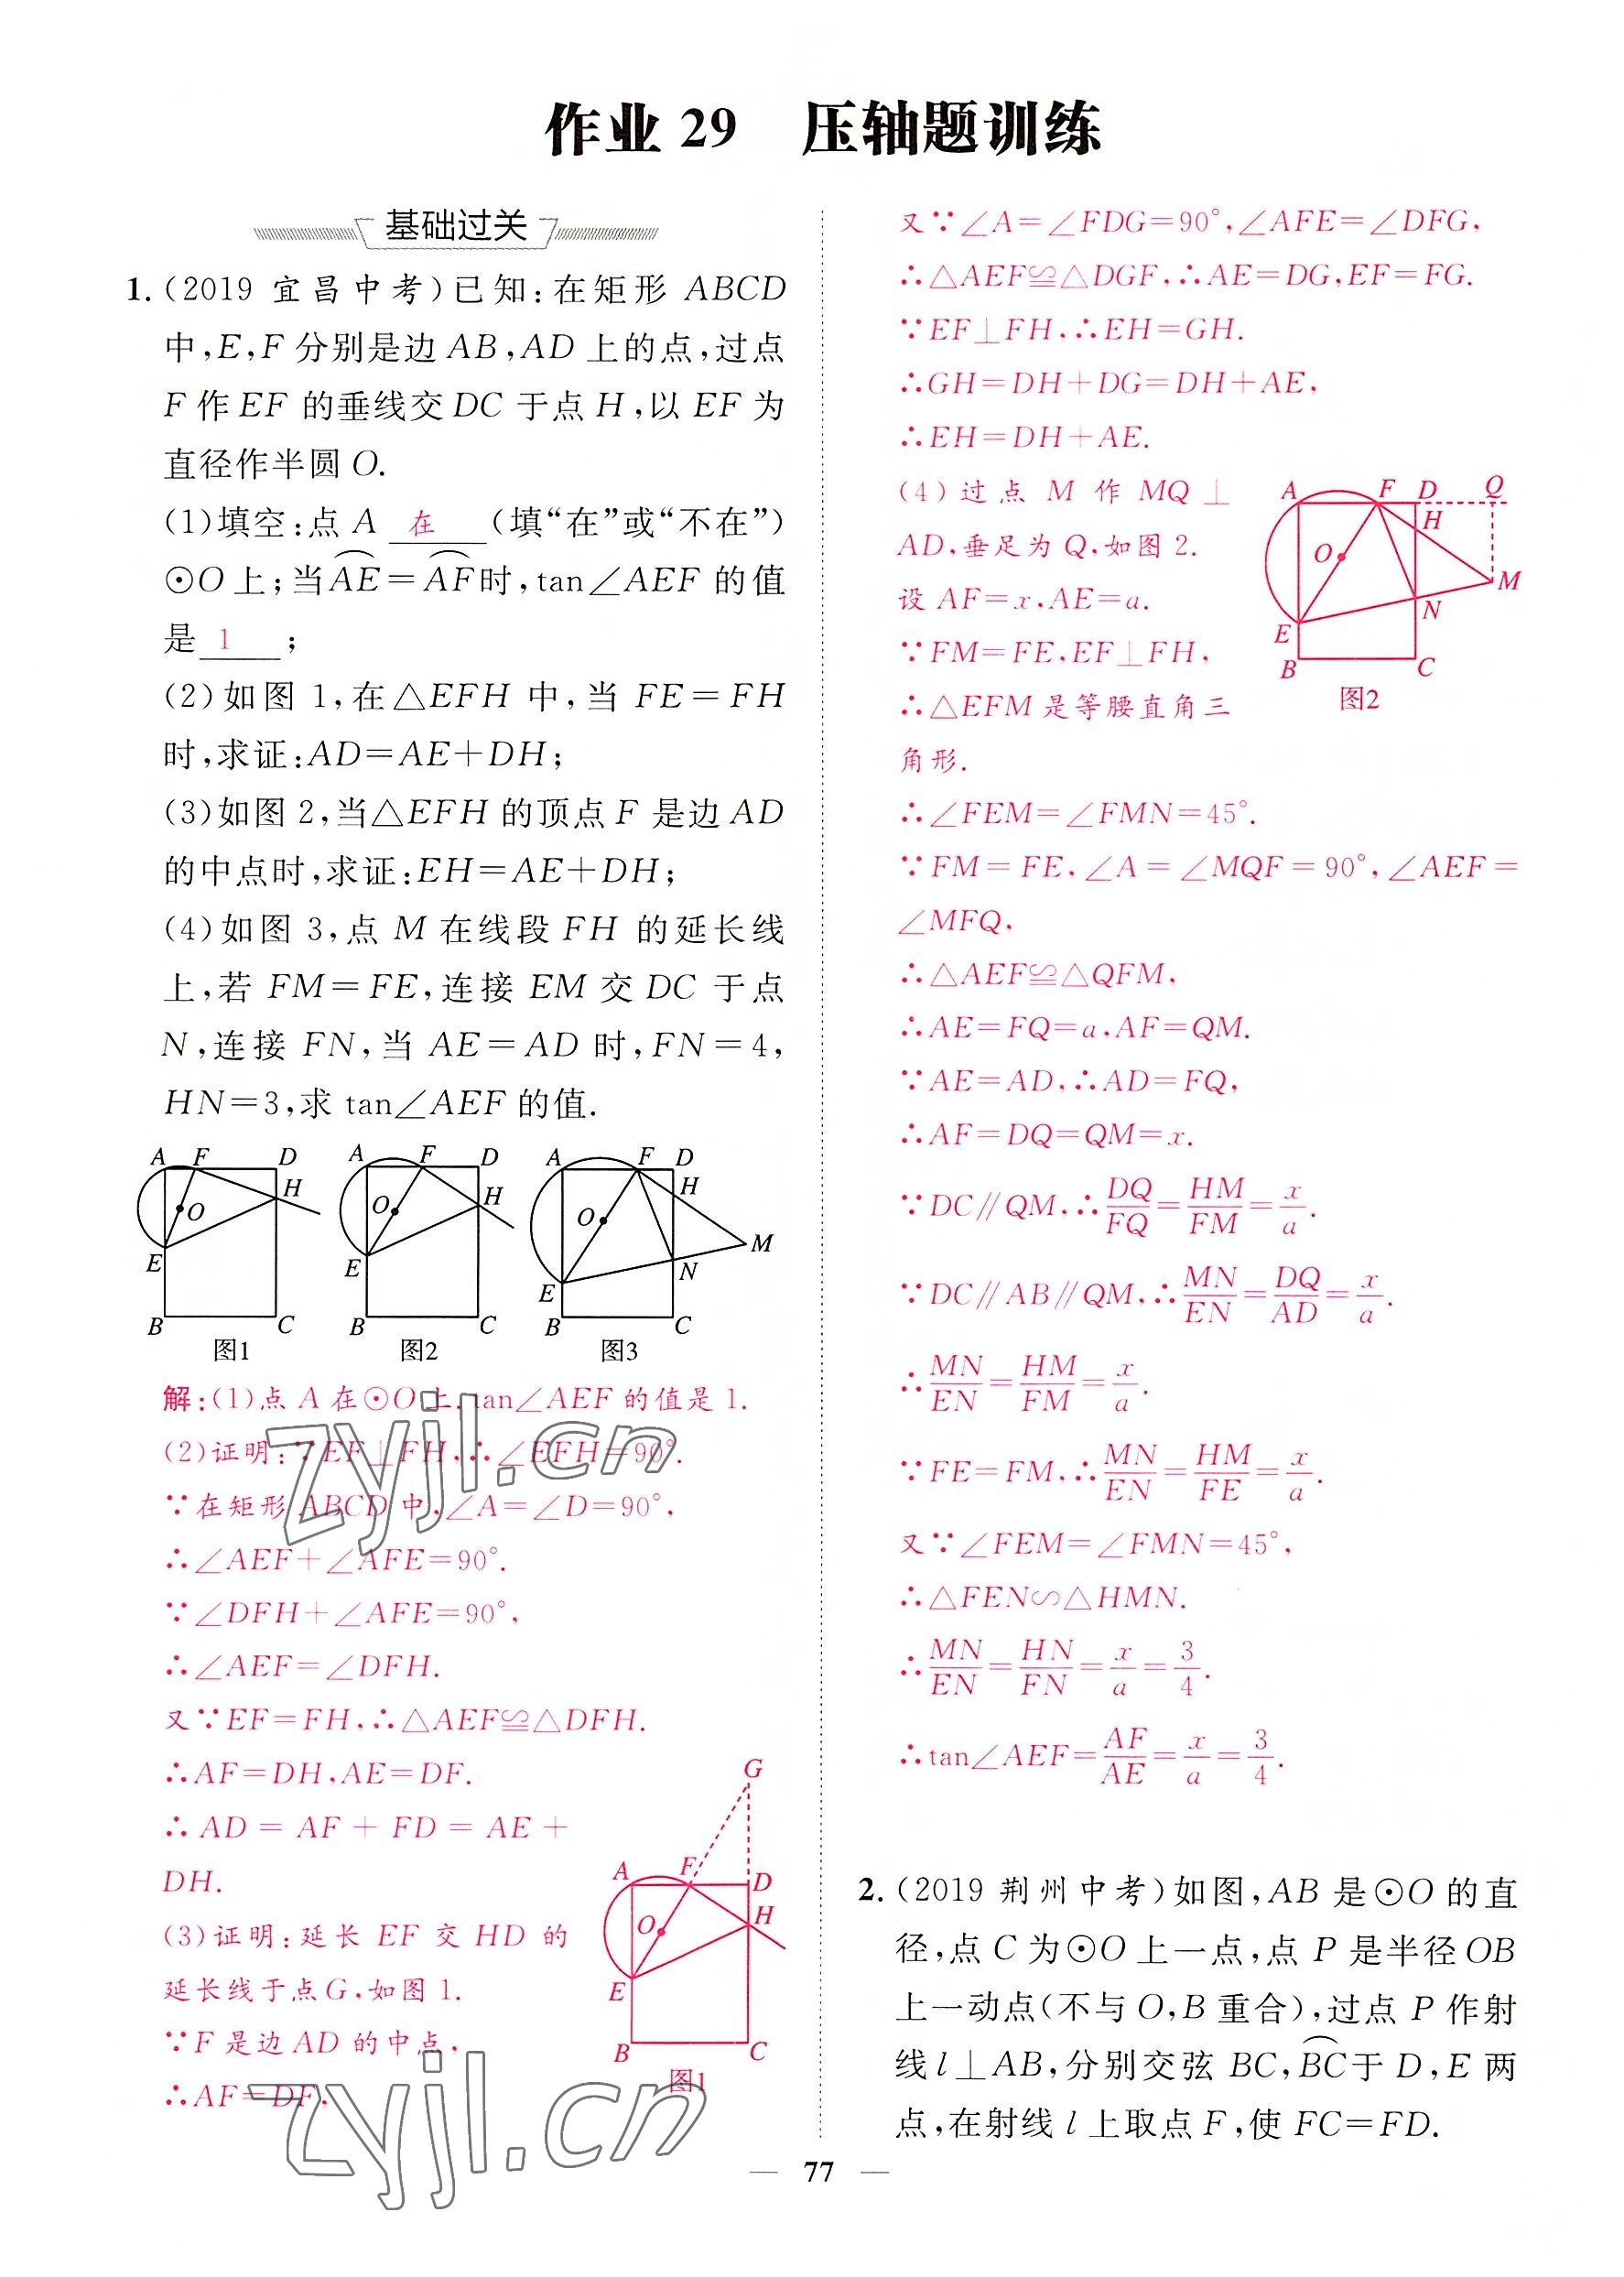 作业 29 压轴题训练
基础过关
1.(2019 宜昌中考)已知:在矩形 ABCD
中,E,F 分别是边 AB,AD 上的点,过点
F 作 EF 的垂线交 DC 于点 H,以 EF 为
直径作半圆 O.
(1)填空:点 A 在 (填“在”或“不在”)
⊙O 上;当⌒AE=⌒AF时,tan∠AEF 的值
是 1 ;
(2)如图 1,在△EFH 中,当 FE=FH
时,求证:AD=AE+DH;
(3)如图 2,当△EFH 的顶点 F 是边 AD
的中点时,求证:EH=AE+DH;
(4)如图 3,点 M 在线段 FH 的延长线
上,若 FM=FE,连接 EM 交 DC 于点
N,连接 FN,当 AE=AD 时,FN=4,
HN=3,求 tan∠AEF 的值.
A F D H O E B C 图1
A F D H O E B C 图2
A F D H O M N E B C 图3
解:(1)点 A 在⊙O 上,tan∠AEF 的值是 1.
(2)证明:∵EF⊥FH,∴∠EFH=90°.
∵在矩形 ABCD 中,∠A=∠D=90°,
∴∠AEF+∠AFE=90°.
∵∠DFH+∠AFE=90°,
∴∠AEF=∠DFH.
又∵EF=FH,∴△AEF≌△DFH.
∴AF=DH,AE=DF.
∴AD=AF+FD=AE+
DH.
(3)证明:延长 EF 交 HD 的
延长线于点 G,如图 1.
∵F 是边 AD 的中点,
∴AF=DF.
G A F D H O E B C 图1
又∵∠A=∠FDG=90°,∠AFE=∠DFG,
∴△AEF≌△DGF,∴AE=DG,EF=FG.
∵EF⊥FH,∴EH=GH.
∴GH=DH+DG=DH+AE,
∴EH=DH+AE.
(4)过点 M 作 MQ⊥
AD,垂足为 Q,如图 2.
设 AF=x,AE=a.
∵FM=FE,EF⊥FH,
∴△EFM 是等腰直角三
角形.
A F D Q H O M N E B C 图2
∴∠FEM=∠FMN=45°.
∵FM=FE,∠A=∠MQF=90°,∠AEF=
∠MFQ,
∴△AEF≌△QFM,
∴AE=FQ=a,AF=QM.
∵AE=AD,∴AD=FQ,
∴AF=DQ=QM=x.
∵DC∥QM,∴DQ/FQ=HM/FM=x/a.
∵DC∥AB∥QM,∴MN/EN=DQ/AD=x/a.
∴MN/EN=HM/FM=x/a.
∵FE=FM,∴MN/EN=HM/FE=x/a.
又∵∠FEM=∠FMN=45°,
∴△FEN∽△HMN.
∴MN/EN=HN/FN=x/a=3/4.
∴tan∠AEF=AF/AE=x/a=3/4.
2.(2019 荆州中考)如图,AB 是⊙O 的直
径,点 C 为⊙O 上一点,点 P 是半径 OB
上一动点(不与 O,B 重合),过点 P 作射
线 l⊥AB,分别交弦 BC,⌒BC于 D,E 两
点,在射线 l 上取点 F,使 FC=FD.
77
zyjl.cn
zyjl.cn